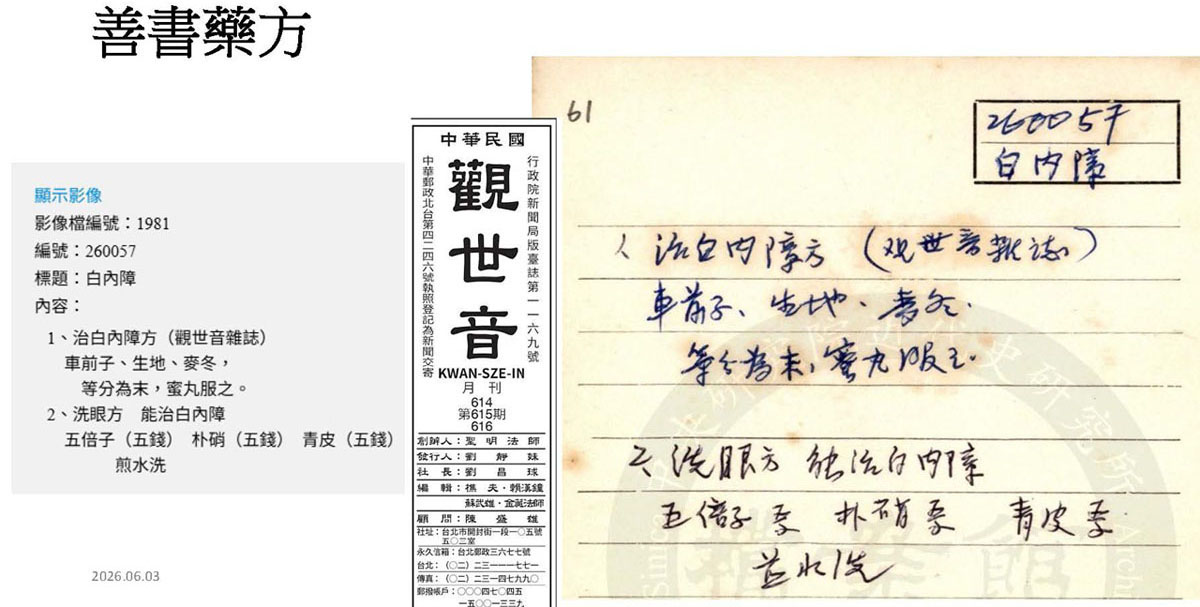 善書藥方
顯示影像
影像檔編號：1981
編號：260057
標題：白內障
內容：
1、治白內障方（觀世音雜誌）
車前子、生地、麥冬，
等分為末，蜜丸服之。
2、洗眼方　能治白內障
五倍子（五錢）　朴硝（五錢）　青皮（五錢）
煎水洗
2026.06.03
中華民國
行政院新聞局版臺誌第一一六九號
觀世音
中華郵政北台第四二四六號執照登記為新聞交寄
KWAN-SZE-IN
月刊
614
第615期
616
創辦人：聖明法師
發行人：劉靜妹
社長：劉昌球
編輯：樵夫・賴漢鐘
蘇武雄・金菀法師
顧問：陳盛雄
社址：台北市開封街一段一〇五號
五〇三室
永久信箱：台北郵政三六七七號
台北：（〇二）二三一一一七七一
傳真：（〇二）二三一四七九九〇
郵撥帳戶：〇〇〇四七〇四五
一五〇〇一三三九
61
260057
白內障
1、治白內障方（观世音雜誌）
車前子、生地、麥冬.
等分為末，蜜丸服之.
2、洗眼方 能治白內障
五倍子 朴硝 青皮
水洗